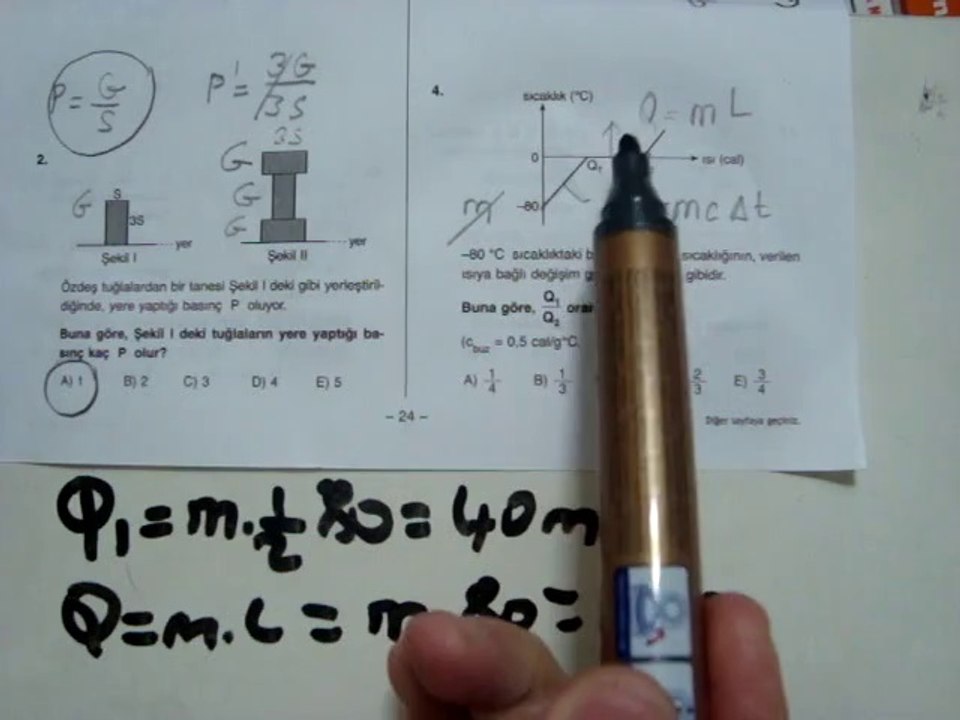 P = G/S
P' = 3G/3S
2.
G
S
3S
yer
Şekil I
3S
G
G
G
yer
Şekil II
Özdeş tuğlalardan bir tanesi Şekil I deki gibi yerleştiril-
diğinde, yere yaptığı basınç P oluyor.
Buna göre, Şekil I deki tuğlaların yere yaptığı ba-
sınç kaç P olur?
A) 1 B) 2 C) 3 D) 4 E) 5
- 24 -
4.
sıcaklık (°C)
0
Q₁
ısı (cal)
-80
Q = mL
m
mcΔt
-80 °C sıcaklıktaki b sıcaklığının, verilen
ısıya bağlı değişim g gibidir.
Buna göre, Q₁/Q₂ oran
(c_buz = 0,5 cal/g°C,
A) 1/4 B) 1/3 2/3 E) 3/4
Diğer sayfaya geçiniz.
Q₁ = m.1/2 80 = 40m
Q = m.L = m.80 =